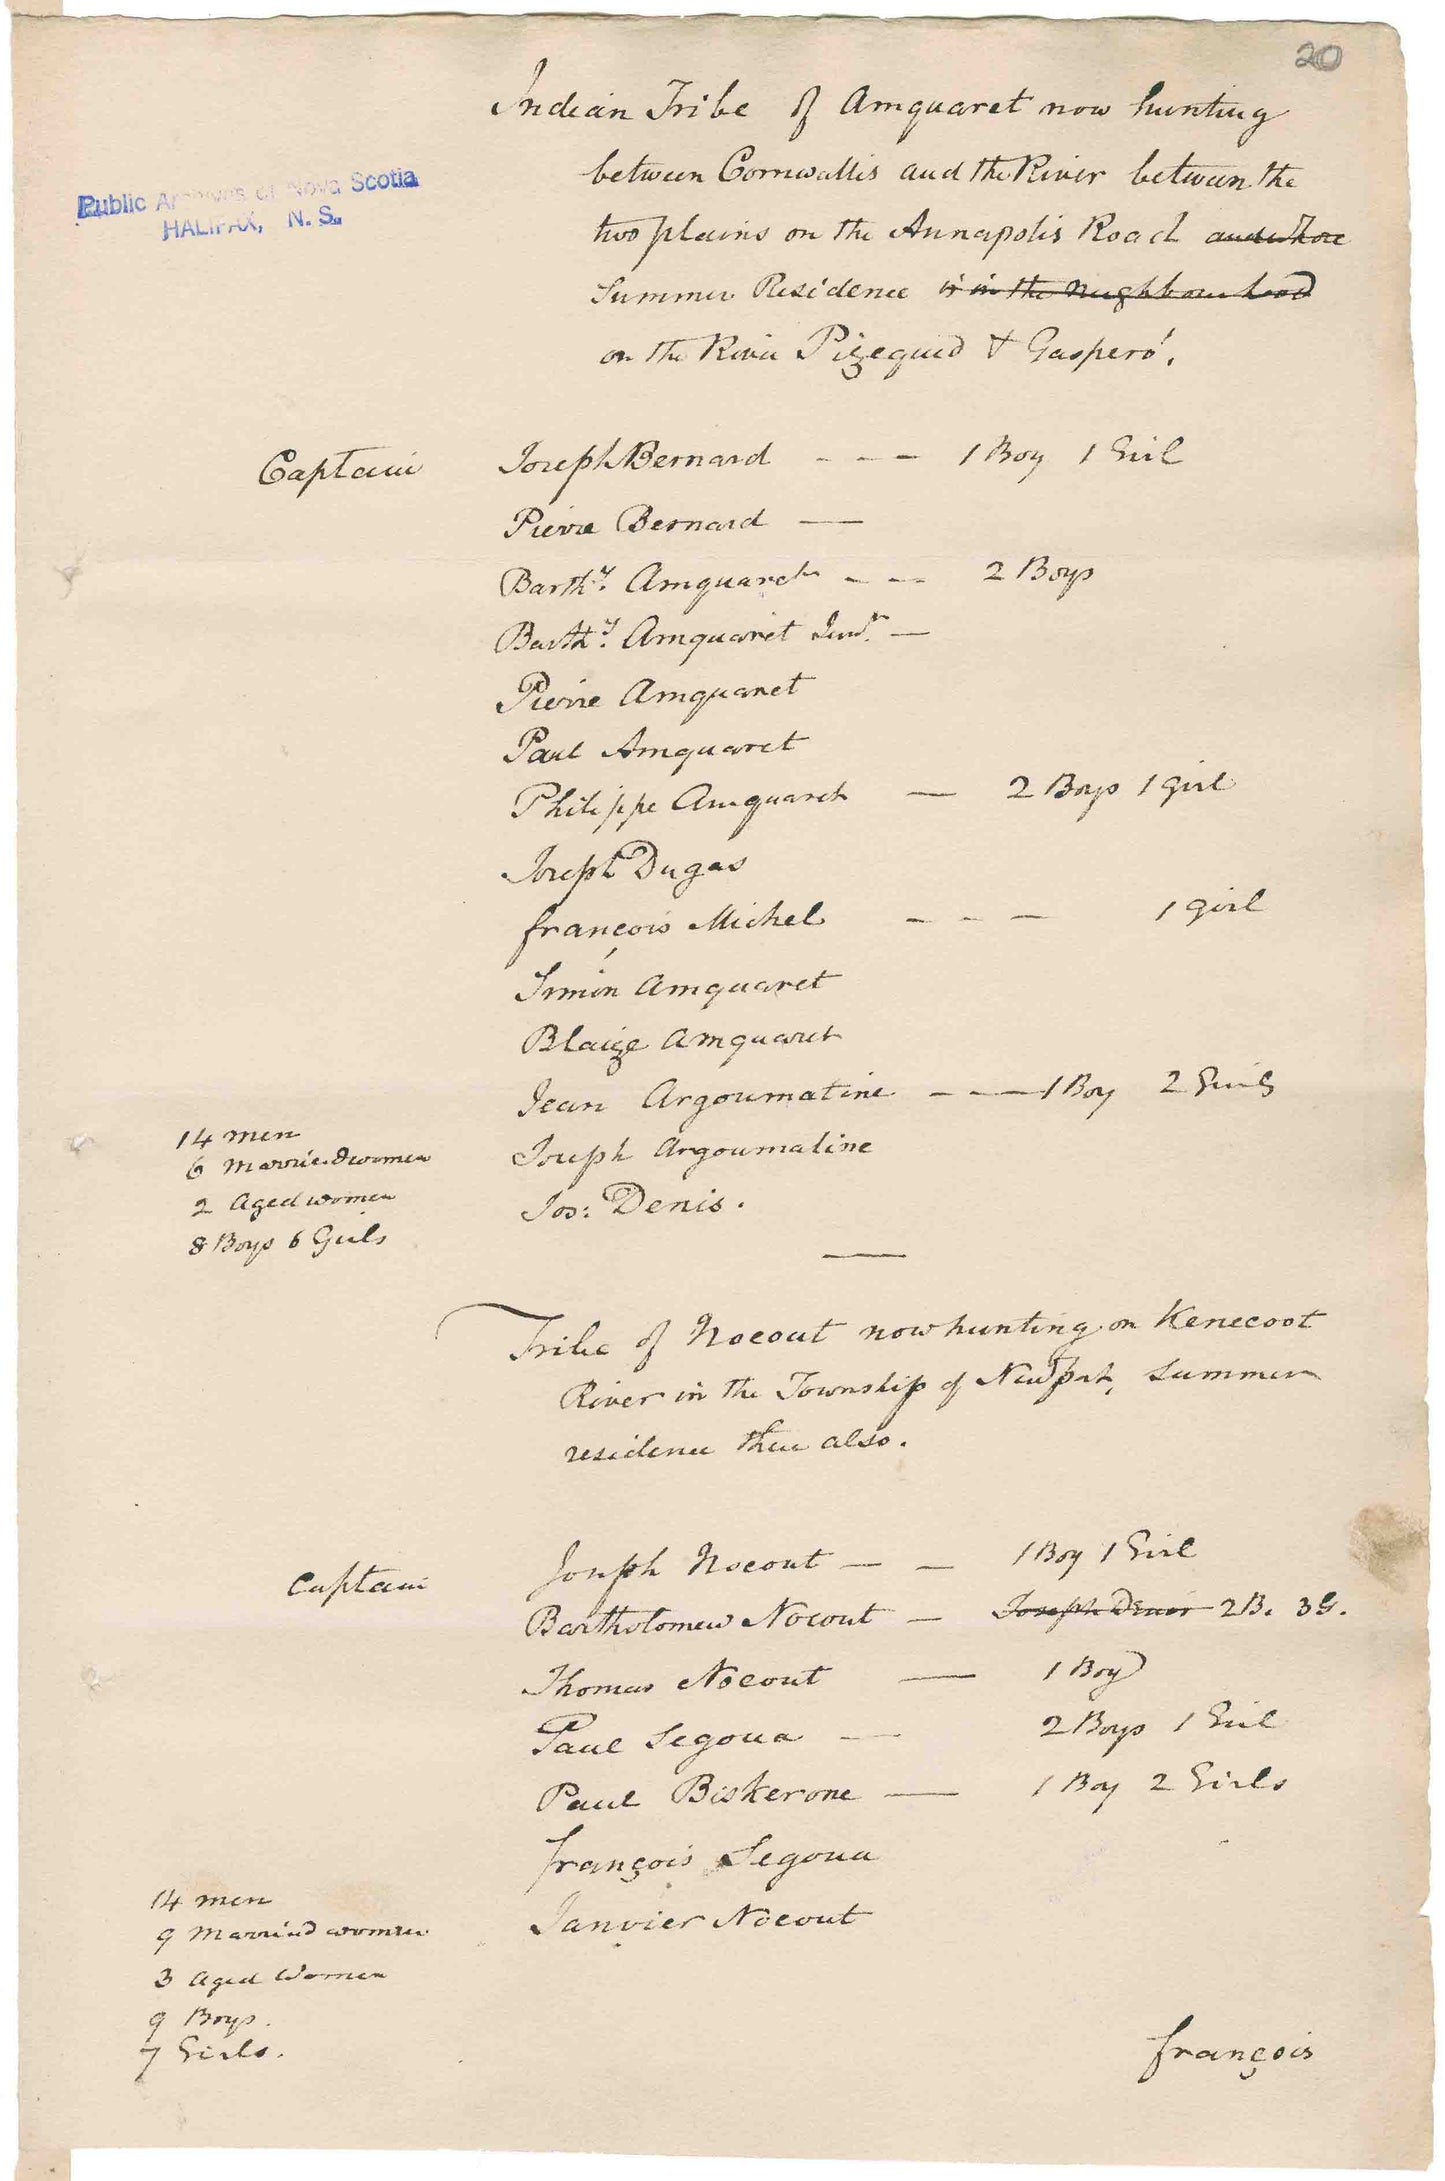 20
Indian Tribe of Amquaret now hunting
between Cornwallis and the River between the
two plains on the Annapolis Road and whose
Summer Residence is in the Neighbourhood
on the River Pizequid & Gasperó.
Public Archives of Nova Scotia
HALIFAX, N. S.
Captain Joseph Bernard - - - 1 Boy 1 Girl
Pierre Bernard —
Barthy. Amquaret - - 2 Boys
Barthy. Amquaret Junr. —
Pierre Amquaret
Paul Amquaret
Philippe Amquaret — 2 Boys 1 girl
Joseph Dugas
françois Michel - - - 1 girl
Simon Amquaret
Blaize Amquaret
Jean Argoumatine - - — 1 Boy 2 Girls
Joseph Argoumatine
Jos: Denis.
14 men
6 Married women
2 Aged women
8 Boys 6 Girls
Tribe of Nocout now hunting on Kenecoot
River in the Township of Newport, Summer
residence there also.
Captain Joseph Nocout — — 1 Boy 1 Girl
Bartholomew Nocout — Joseph Denis 2 B. 3 G.
Thomas Nocout — 1 Boy
Paul Segoua — 2 Boys 1 Girl
Paul Biskerone — 1 Boy 2 Girls
françois Segoua
Janvier Nocout
14 men
9 Married women
3 Aged Women
9 Boys.
7 Girls.
françois